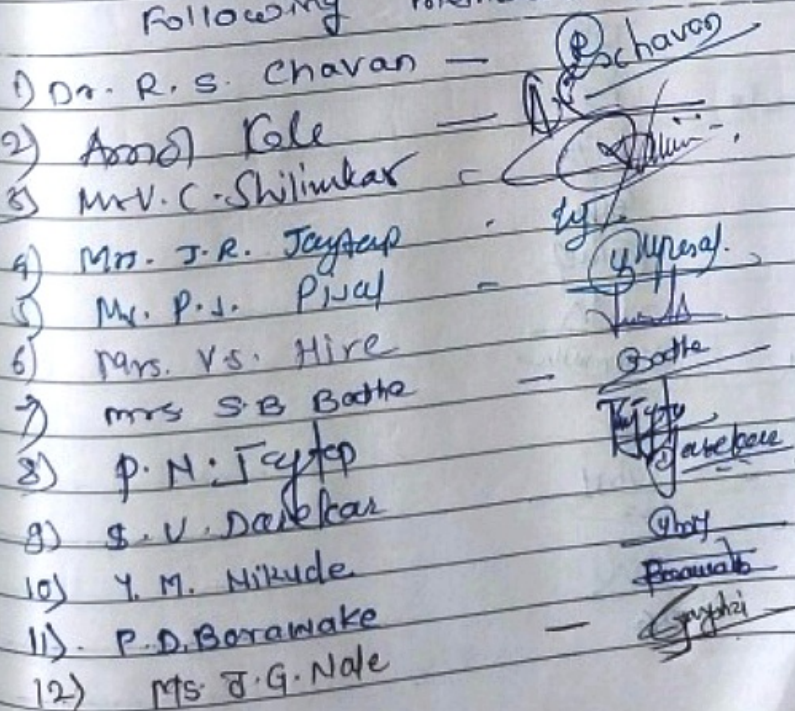 Following
1) Dr. R. S. Chavan — Rschavan
2) Amol Kole —
3) Mr V. C. Shilimkar -
4) Mrs. J. R. Jaytap -
5) Mr. P. J. Pisal -
6) Mrs. V S. Hire
7) mrs S. B Bathe — Bathe
8) P. N. Jaytap
9) S. V. Darekar Darekar
10) Y. M. Nikude
11). P. D. Borawake Borawake
12) Ms. J. G. Nale —